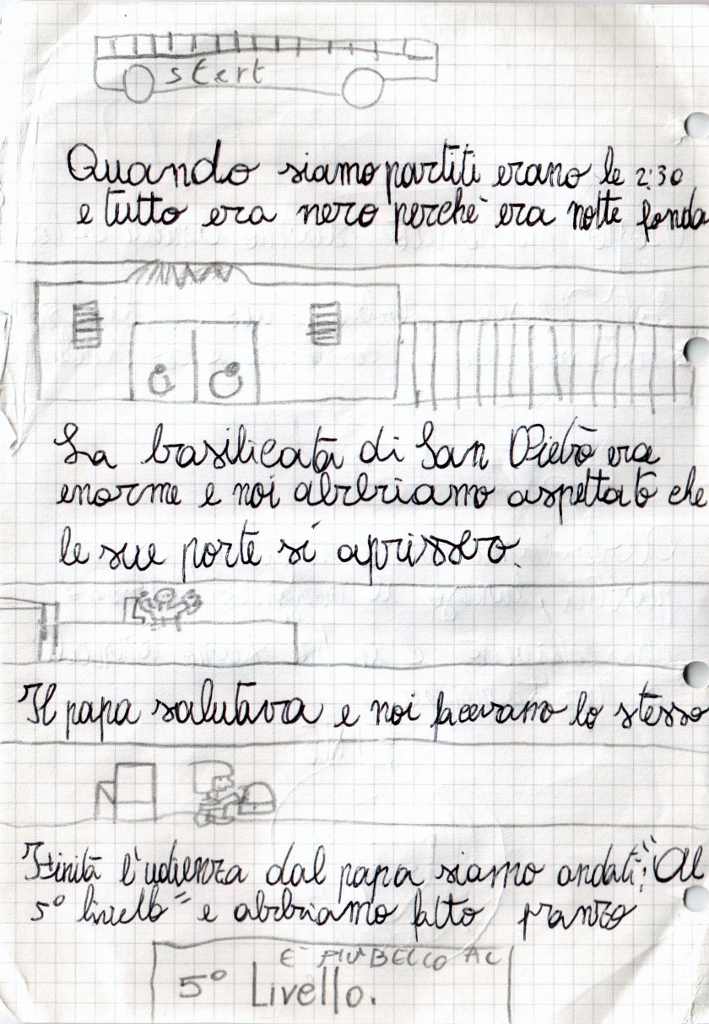 start
Quando siamo partiti erano le 2:30
e tutto era nero perchè era notte fonda
La basilicata di San Pietro era
enorme e noi abbbiamo aspettato che
le sue porte si aprissero.
Il papa salutava e noi facevamo lo stesso
Finita l'udienza dal papa siamo andati: "Al
5° livello" e abbbiamo fatto pranzo
E' PIU' BELLO AL
5° Livello.